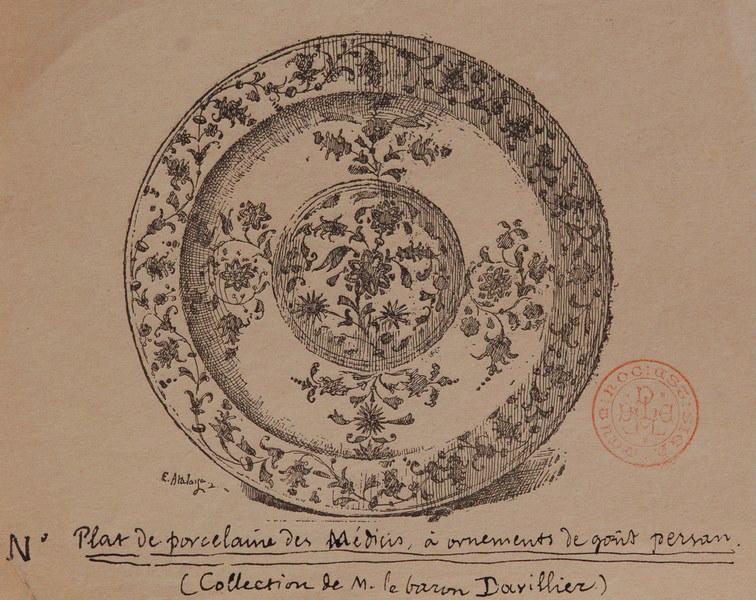 E. Atalaya
N° Plat de porcelaine des Médicis, à ornements de goût persan.
(Collection de M. le baron Davillier.)